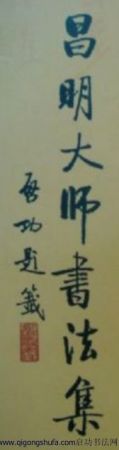 昌明大师書法集
启功题籤
www.qigongshufa.com启功书法网